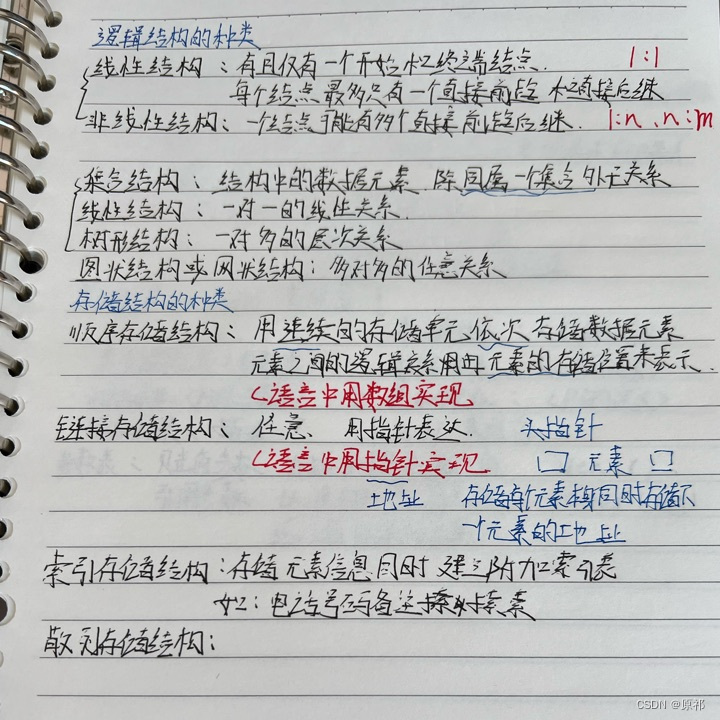 逻辑结构的种类
线性结构：有且仅有一个开始和终端结点. 1:1
每个结点最多只有一个直接前趋和直接后继
非线性结构：一个结点可能有多个直接前趋后继. 1:n、n:m
集合结构：结构中的数据元素 除同属一个集合外无关系
线性结构：一对一的线性关系.
树形结构：一对多的层次关系
图状结构或网状结构：多对多的任意关系
存储结构的种类
顺序存储结构：用连续的存储单元依次存储数据元素
元素之间的逻辑关系用由元素的存储位置来表示.
C语言中用数组实现
链接存储结构：任意、用指针表达. 头指针
C语言中用指针实现 元素
地址 存储每个元素本身同时存储下
一个元素的地址
索引存储结构：存储元素信息同时建立附加索引表
如：电话号码
散列存储结构：
CSDN @原祁